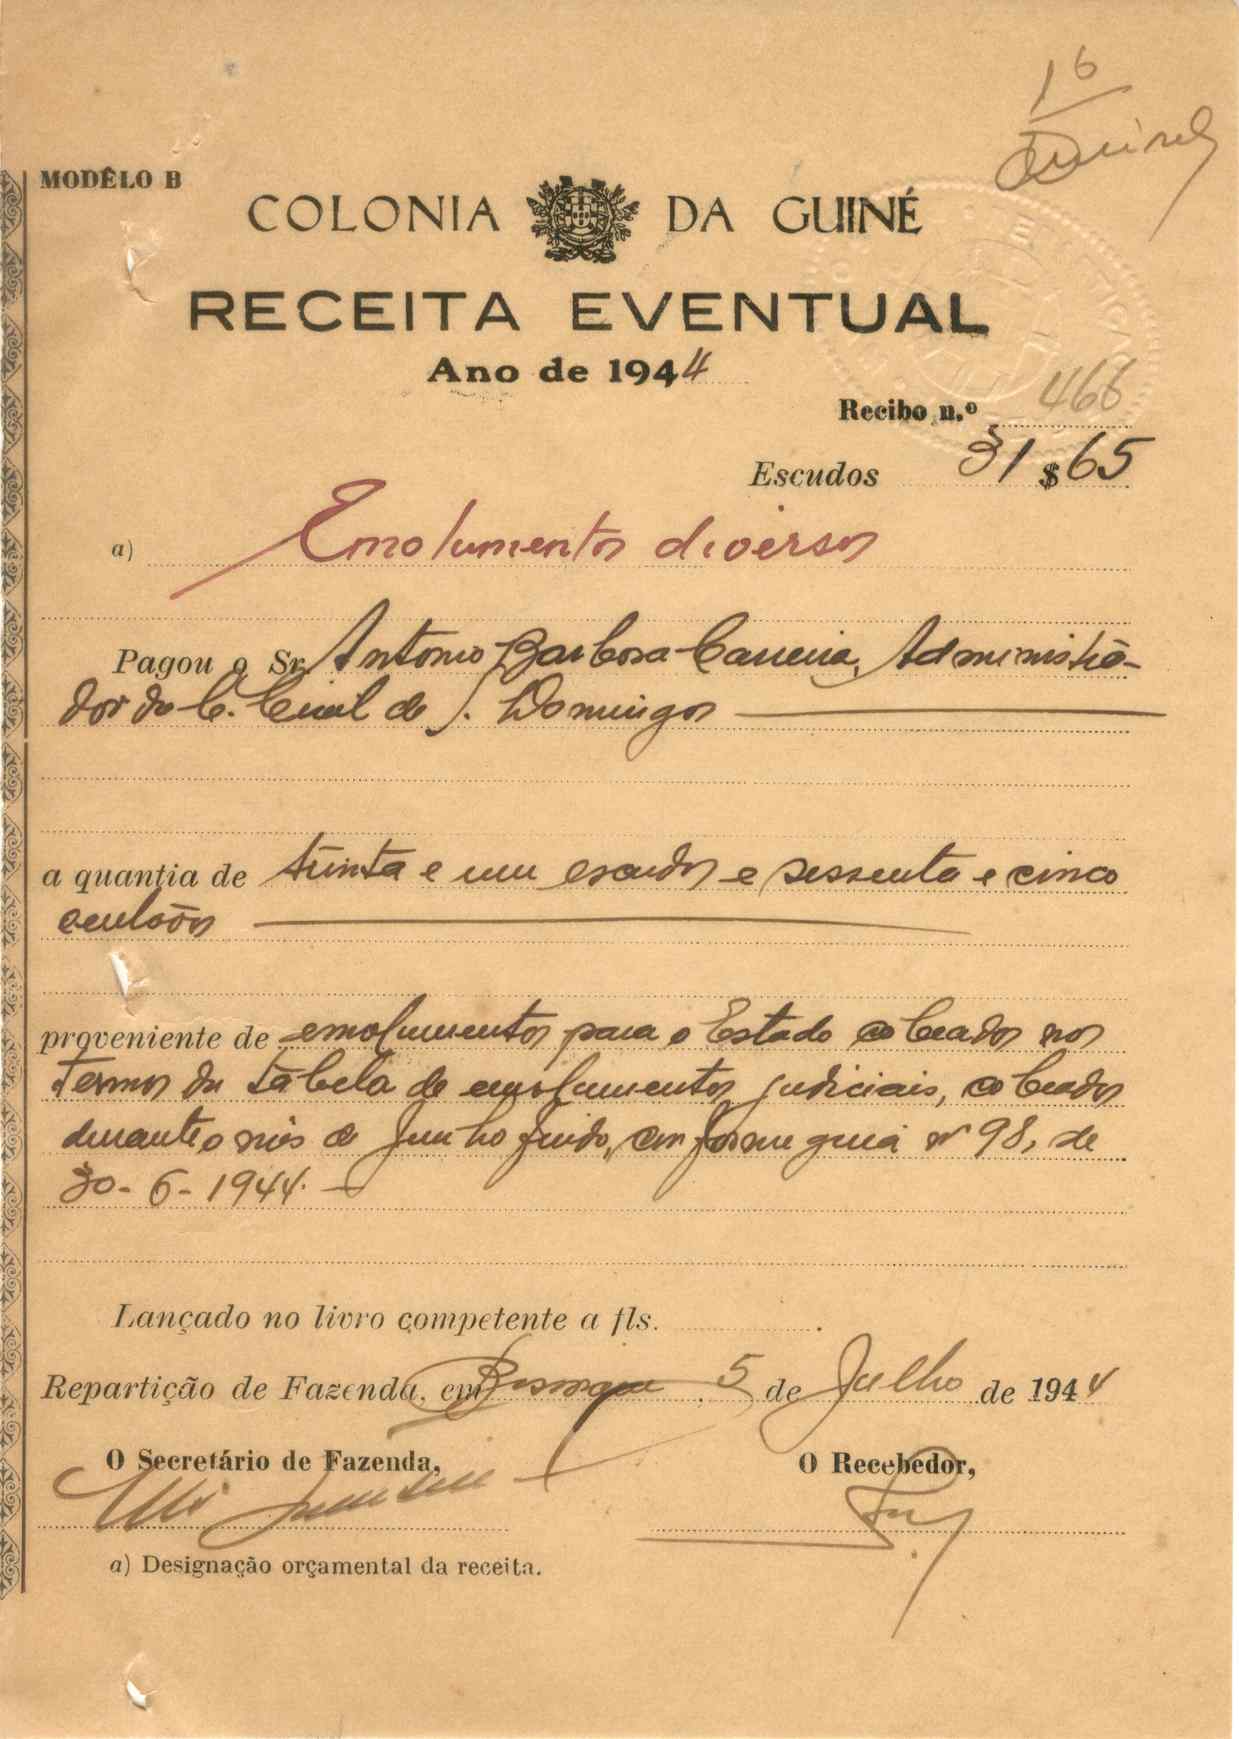 16
MODÊLO B
COLONIA DA GUINÉ
RECEITA EVENTUAL
Ano de 1944
Recibo n.º 466
Escudos 31$65
a) Emolumentos diversos
Pagou o Sr. António Barbosa Carreira, Administra-
dor da C. Civil de S. Domingos
a quantia de trinta e um escudos e sessenta e cinco
centavos
proveniente de emolumentos para o Estado cobrados nos
termos da tabela de emolumentos judiciais, cobrados
durante o mês de Junho findo, conforme guia nº 98, de
30-6-1944.
Lançado no livro competente a fls.
Repartição de Fazenda, em 5 de Julho de 1944
O Secretário de Fazenda,
O Recebedor,
a) Designação orçamental da receita.